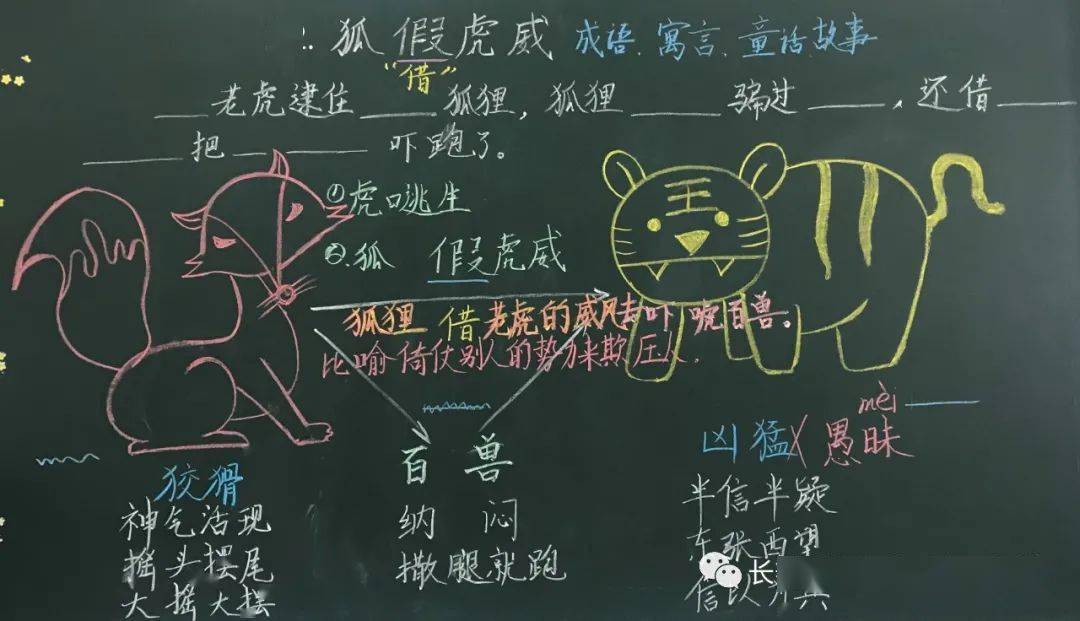 狐假虎威 成语、寓言、童话故事
"借"
___老虎逮住____狐狸，狐狸_____骗过____，还借____
_____把_______吓跑了。
①虎口逃生
②.狐 假虎威
狐狸 借老虎的威风去吓唬百兽。
比喻倚仗别人的势力来欺压人.
mèi
百兽
纳闷
撒腿就跑
狡猾
神气活现
摇头摆尾
大摇大摆
凶猛X愚昧
半信半疑
东张西望
信以为真
长